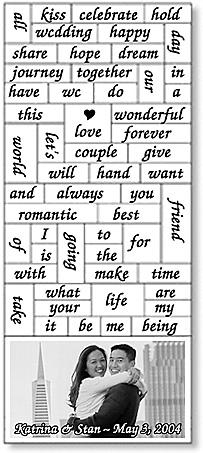 all kiss celebrate hold
wedding happy day
share hope dream
journey together our in
have we do a
this ♥ love wonderful
world let's forever
couple give
will hand want
and always you friend
romantic best
of I going to for
is the
with make time
take what life are
your my
it be me being
Katrina & Stan ~ May 3, 2004